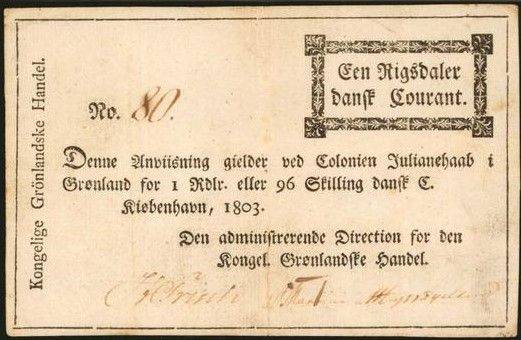 Kongelige Grönlandske Handel.
Een Rigsdaler
dansk Courant.
No. 80.
Denne Anviisning gielder ved Colonien Julianehaab i
Grønland for 1 Rdlr. eller 96 Skilling dansk C.
Kiøbenhavn, 1803.
Den administrerende Direction for den
Kongel. Grønlandske Handel.